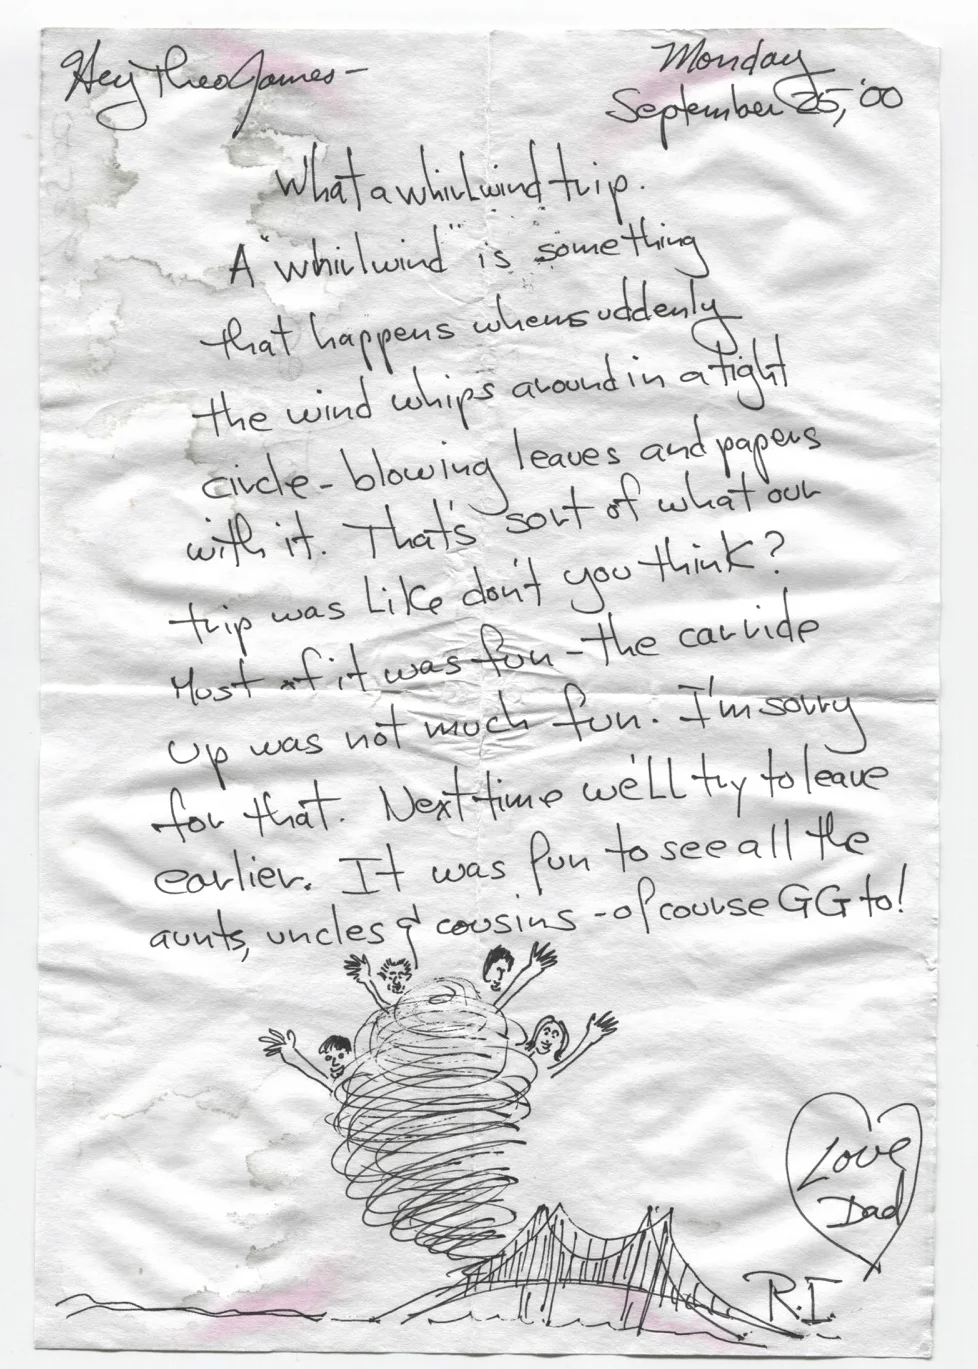 Hey Theo James-
Monday
September 25, '00
What a whirlwind trip.
A "whirlwind" is something
that happens when suddenly
the wind whips around in a tight
circle - blowing leaves and papers
with it. That's sort of what our
trip was like don't you think?
Most of it was fun - the car ride
up was not much fun. I'm sorry
for that. Next time we'll try to leave
earlier. It was fun to see all the
aunts, uncles & cousins - of course GG to!
Love
Dad
R.I.